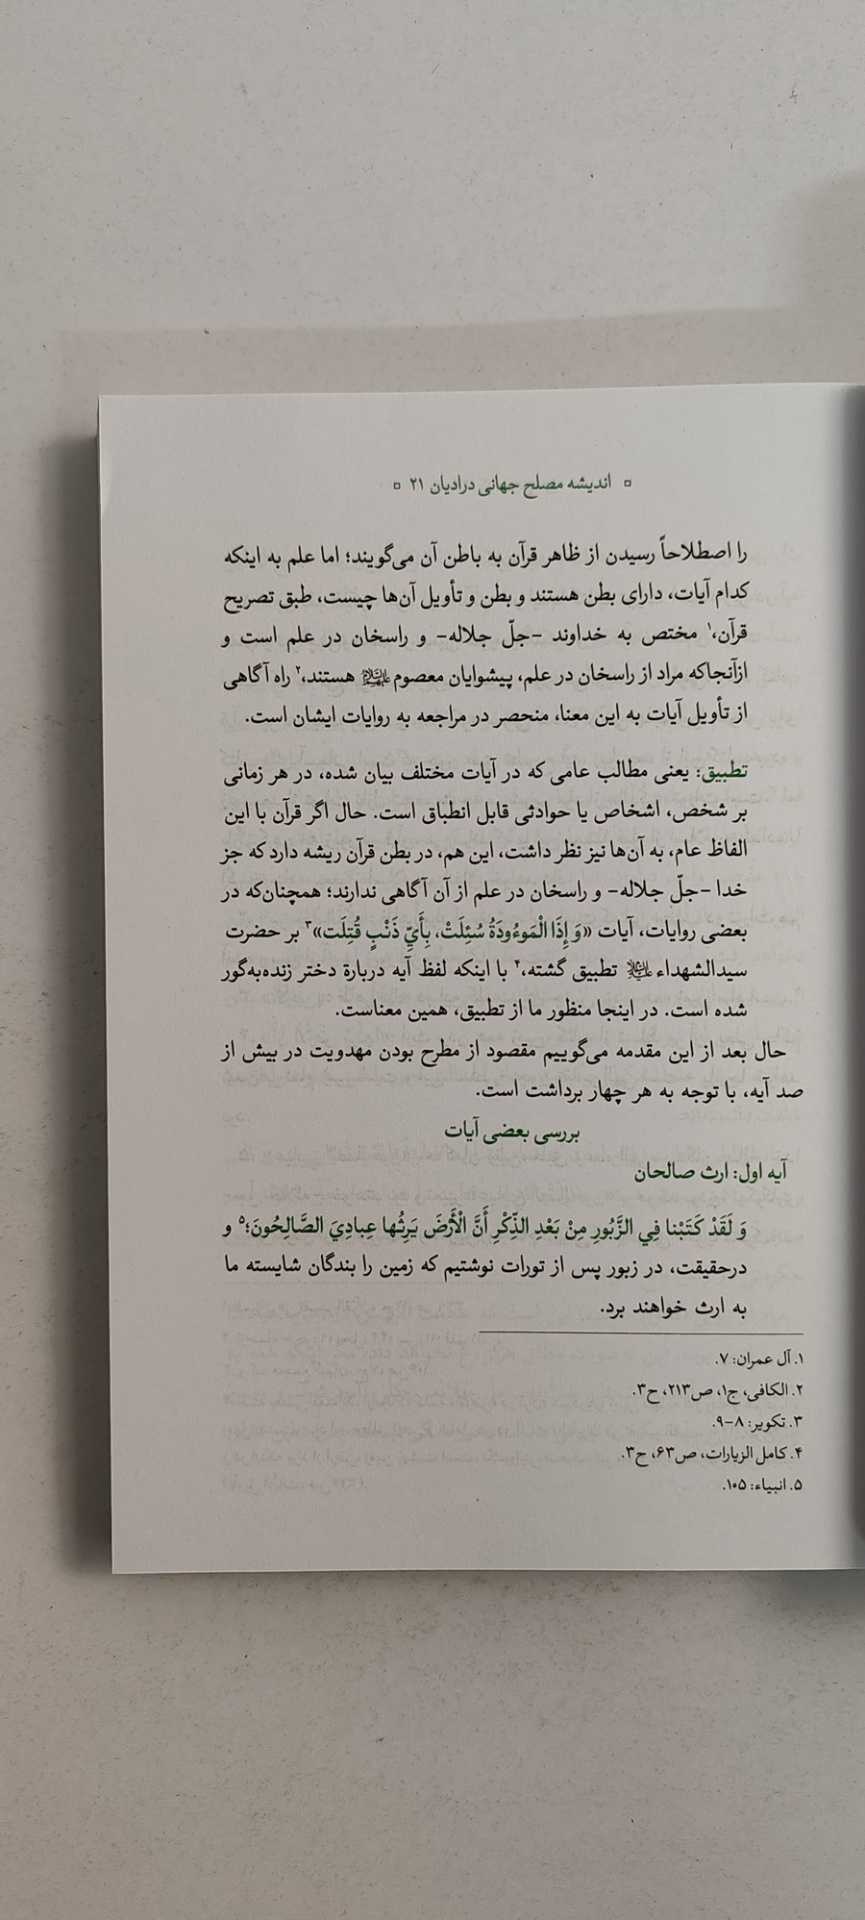 ▫ اندیشه مصلح جهانی درادیان ۲۱ ▫
را اصطلاحاً رسیدن از ظاهر قرآن به باطن آن می‌گویند؛ اما علم به اینکه
کدام آیات، دارای بطن هستند و بطن و تأویل آن‌ها چیست، طبق تصریح
قرآن،۱ مختص به خداوند -جلّ جلاله- و راسخان در علم است و
ازآنجاکه مراد از راسخان در علم، پیشوایان معصوم هستند،۲ راه آگاهی
از تأویل آیات به این معنا، منحصر در مراجعه به روایات ایشان است.
تطبیق: یعنی مطالب عامی که در آیات مختلف بیان شده، در هر زمانی
بر شخص، اشخاص یا حوادثی قابل انطباق است. حال اگر قرآن با این
الفاظ عام، به آن‌ها نیز نظر داشت، این هم، در بطن قرآن ریشه دارد که جز
خدا -جلّ جلاله- و راسخان در علم از آن آگاهی ندارند؛ همچنان‌که در
بعضی روایات، آیات «وَ إِذَا الْمَوءُودَةُ سُئِلَتْ، بِأَيِّ ذَنْبٍ قُتِلَت»۳ بر حضرت
سیدالشهداء تطبیق گشته،۴ با اینکه لفظ آیه دربارهٔ دختر زنده‌به‌گور
شده است. در اینجا منظور ما از تطبیق، همین معناست.
حال بعد از این مقدمه می‌گوییم مقصود از مطرح بودن مهدویت در بیش از
صد آیه، با توجه به هر چهار برداشت است.
بررسی بعضی آیات
آیه اول: ارث صالحان
وَ لَقَدْ كَتَبْنا فِي الزَّبُورِ مِنْ بَعْدِ الذِّكْرِ أَنَّ الْأَرْضَ يَرِثُها عِبادِيَ الصَّالِحُونَ؛۵ و
درحقیقت، در زبور پس از تورات نوشتیم که زمین را بندگان شایسته ما
به ارث خواهند برد.
۱. آل عمران: ۷.
۲. الکافی، ج۱، ص۲۱۳، ح۳.
۳. تکویر: ۸-۹.
۴. کامل الزیارات، ص۶۳، ح۳.
۵. انبیاء: ۱۰۵.